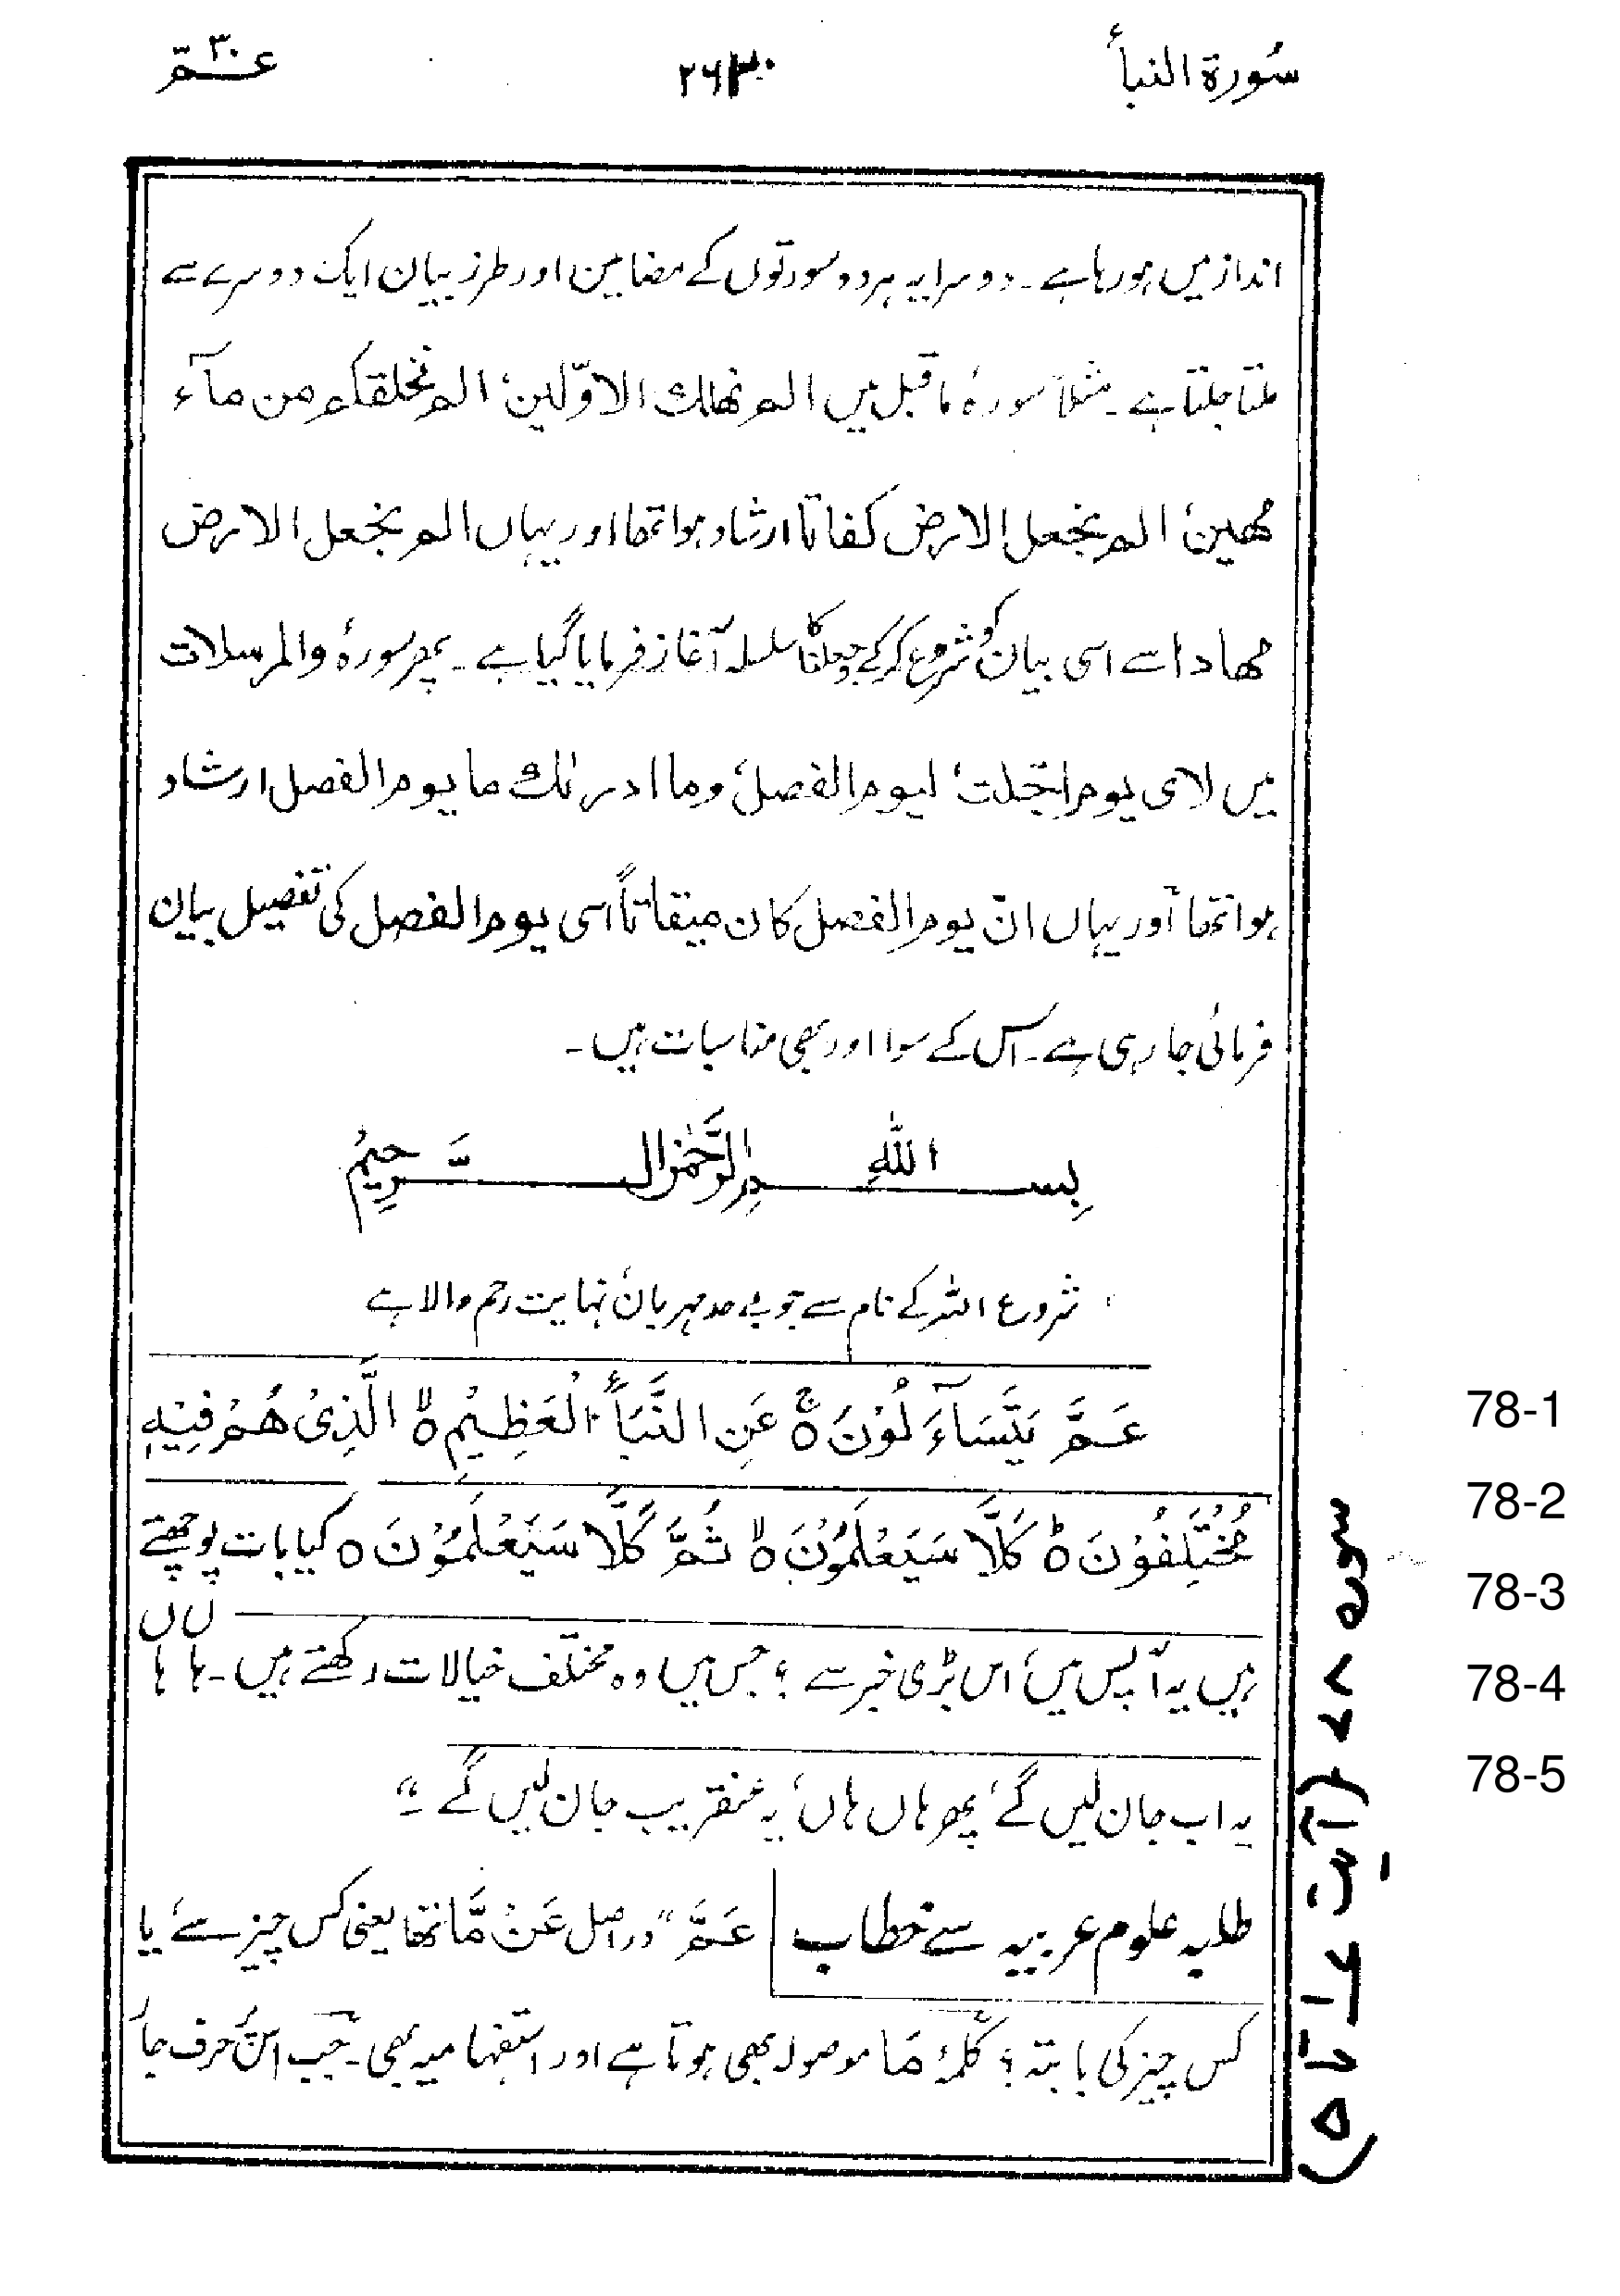 سُورۃ النبأ
۲۶۳۰
عـــمّ ۳۰
انداز میں ہو رہا ہے۔ دوسرا یہ ہر دو سورتوں کے مضامین اور طرز بیان ایک دوسرے سے
ملتا جلتا ہے۔ مثلاً سورۂ ماقبل میں الم نھلك الاوّلین، الم نخلقكم من مآء
مھین، الم نجعل الارض كفاتا ارشاد ہوا تھا اور یہاں الم نجعل الارض
مھادا سے اسی بیان کو شروع کر کے جعلنا کا سلسلہ آغاز فرمایا گیا ہے۔ پھر سورۂ والمرسلات
میں لای یوم اجّلت، لیوم الفصل، وما ادرٰىك ما یوم الفصل ارشاد
ہوا تھا اور یہاں انّ یوم الفصل كان میقاتاً اسی یوم الفصل کی تفصیل بیان
فرمائی جا رہی ہے۔ اس کے سوا اور بھی مناسبات ہیں۔
بِســـمِ اللّٰهِ الرَّحْمٰنِ الـــرَّحِيْمِ
شروع اللہ کے نام سے جو بے حد مہربان، نہایت رحم والا ہے
عَـمَّ يَتَسَآءَلُوْنَ ہ عَنِ النَّبَاِ الْعَظِيْمِ ہ الَّذِىْ هُمْ فِيْهِ
مُخْتَلِفُوْنَ ہ كَلَّا سَيَعْلَمُوْنَ ہ ثُمَّ كَلَّا سَيَعْلَمُوْنَ ہ کیا بات پوچھتے
ہیں یہ آپس میں، اس بڑی خبر سے؟ جس میں وہ مختلف خیالات رکھتے ہیں۔ ہاں ہاں
یہ اب جان لیں گے، پھر ہاں ہاں، یہ عنقریب جان لیں گے۔“
طلبہ علوم عربیہ سے خطاب عَـمَّ ”دراصل عَنْ مَّا تھا یعنی کس چیز سے، یا
کس چیز کی بابتہ؟ کلمۂ مَا موصول بھی ہوتا ہے اور استفہامیہ بھی۔ جب اس حرف جا
78-1
78-2
78-3
78-4
78-5
سورہ ۷۸ (آیت ۱ تا ۵)